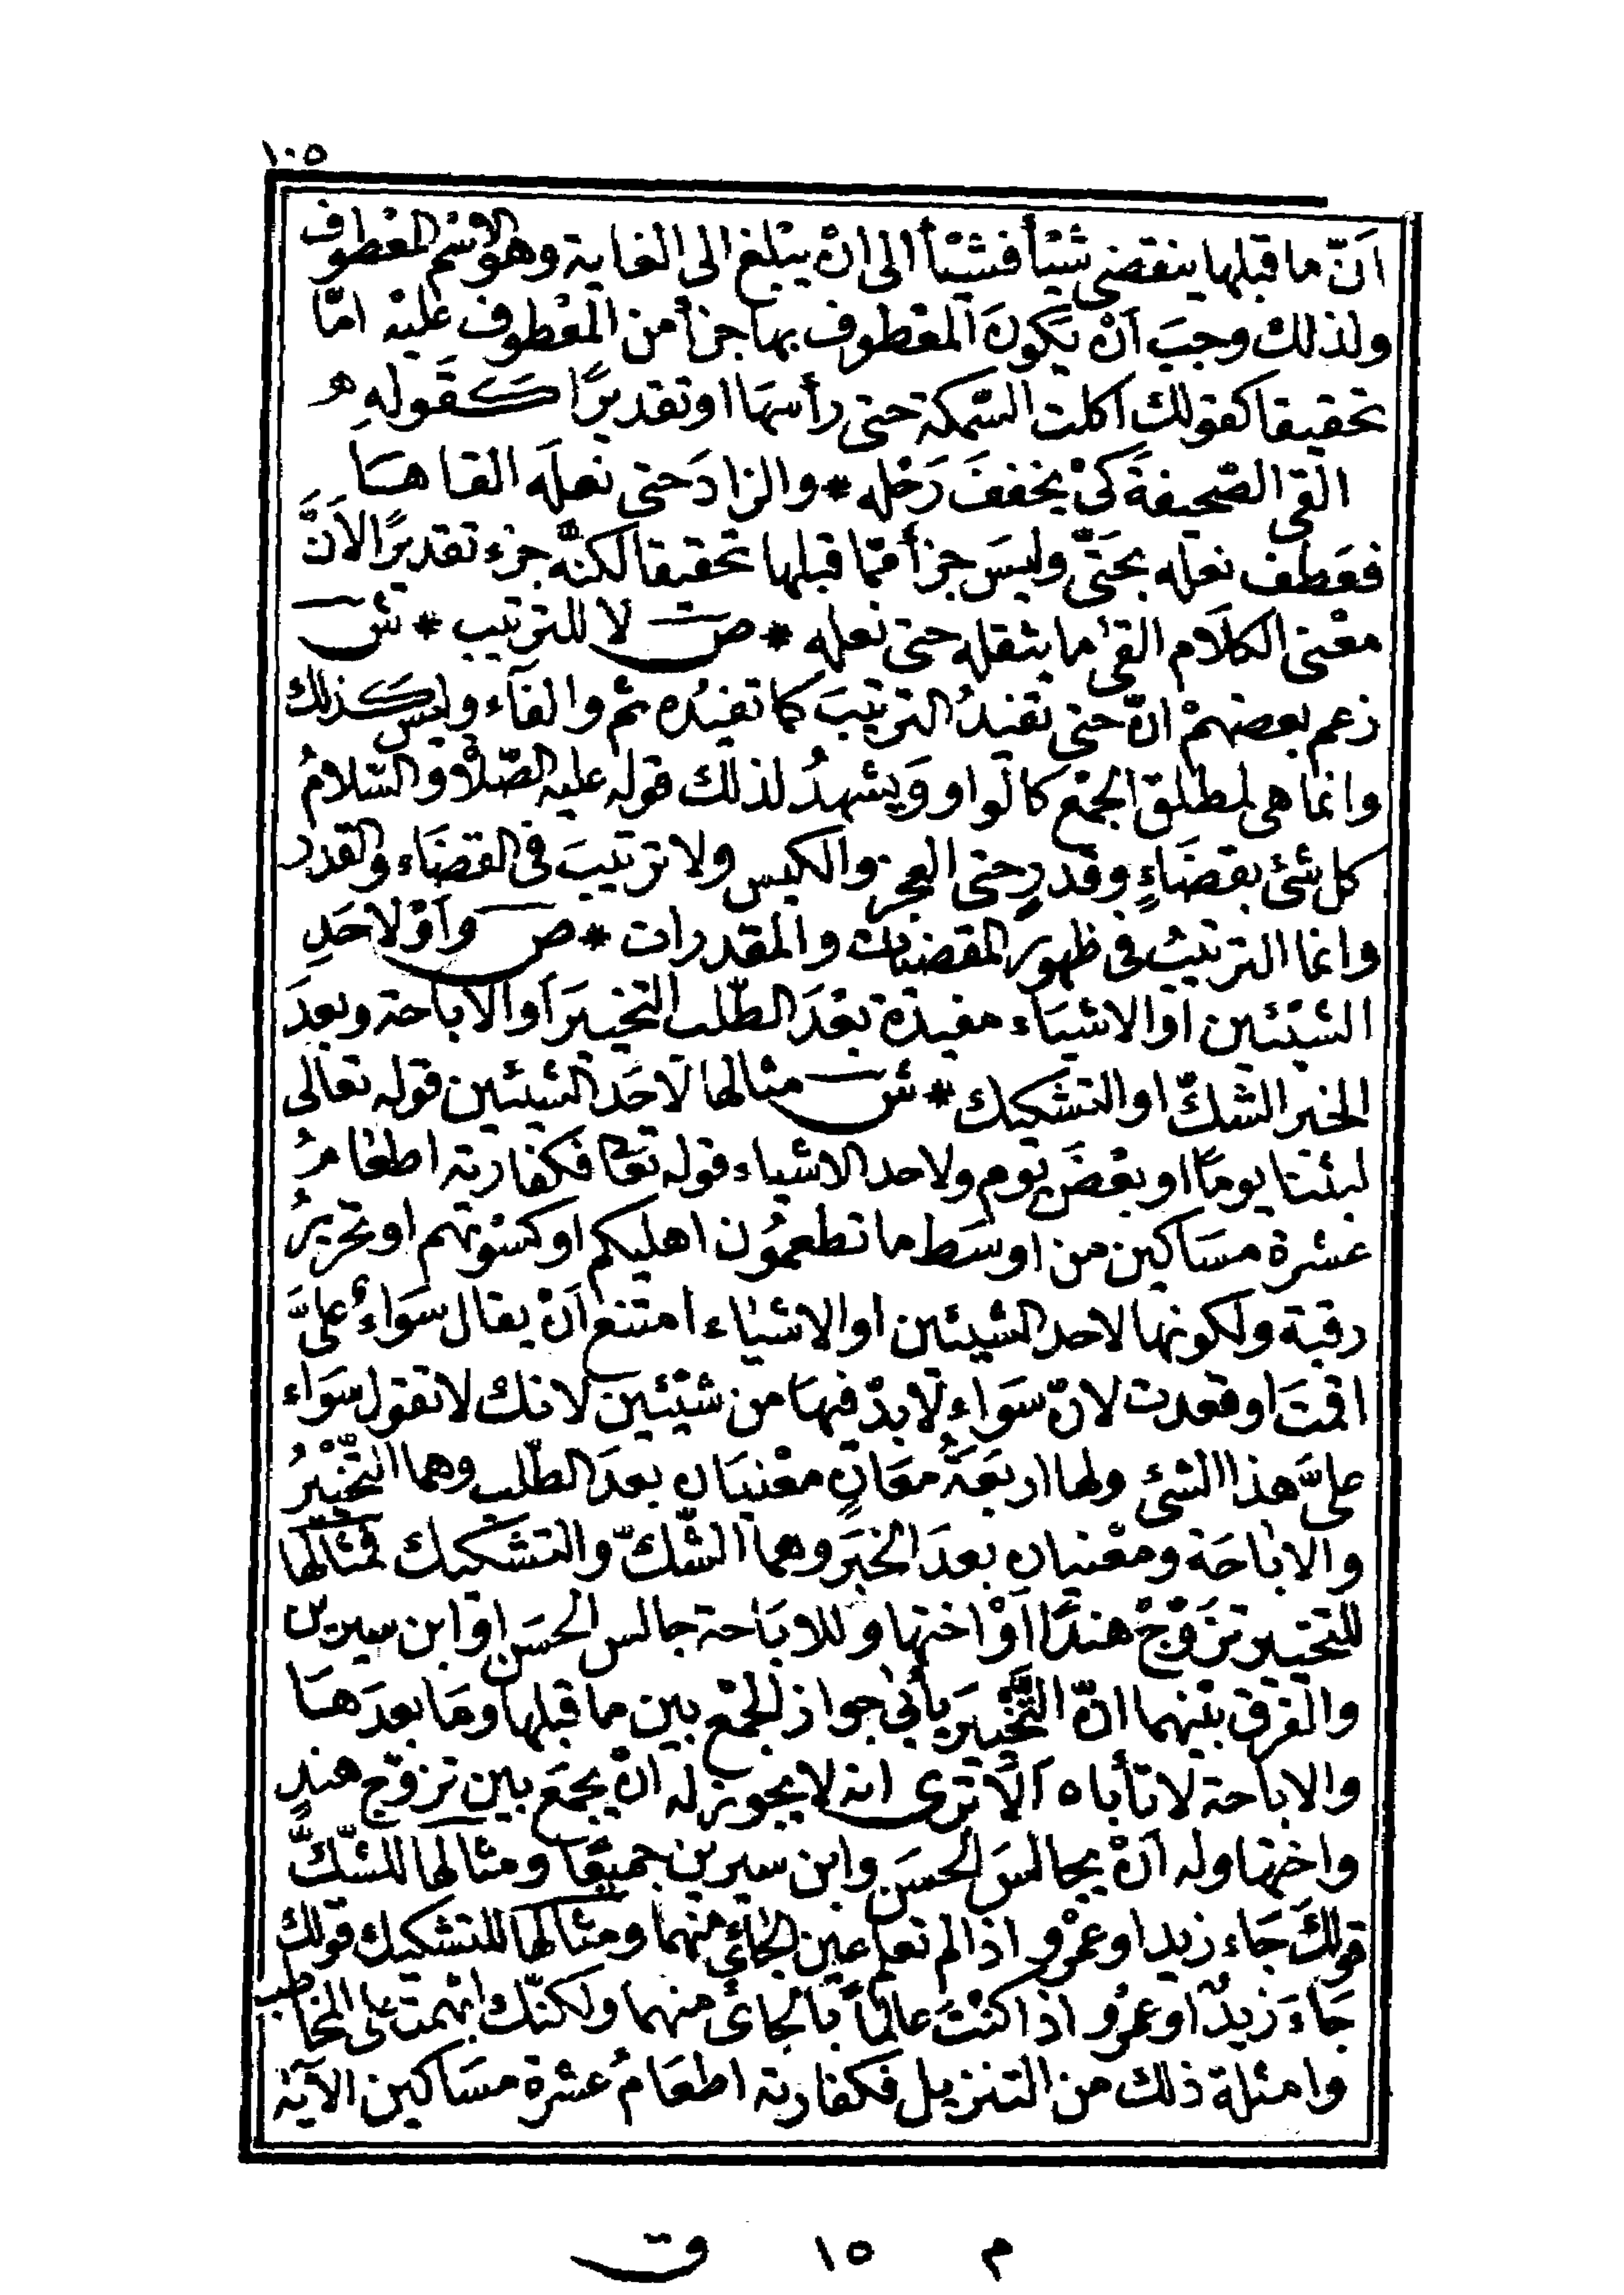 ١٠٥
اَنّ ما قبلها ينقضى شيْأ فشيْأ الى انْ يبْلغ الى الغاية وهو الاسْم المعْطوف
ولذلك وجبَ اَنْ يكونَ المعْطوف بها جزأ من المعْطوف عليْه امّا
تحقيقا كقولك اكلت السّمكة حتى رأسهَا او تقديرًا كَقَولهِ
القى الصّحيفةَ كىْ يخففَ رَحْله * والزادَ حتى نعلَه القاهَا
فعَطف نعله بحَتىّ وليسَ جزأ ممّا قبلها تحقيقا لكنّه جزء تقديرًا لاَنَّ
معْنى الكلاَم القى ما يثقله حتى نعله * ص لا للترتيب * ش
زعم بعضهمْ انّ حتى تفيدُ الترتيبَ كما تفيدُه ثم والفآء وليس كذلك
وانما هى لمطلق الجمْع كالواو وَيشهدُ لذلك قوله عليه الصّلاة والسّلامُ
كل شئ بقضَاءٍ وقدرٍ حتى العجز والكيس ولا ترتيبَ فى القضَاء والقدر
وانما الترتيبُ فى ظهور المقضيات والمقدرات * ص وَاَوْ لاحَدِ
الشيْئين اَو الاشيَاء مفيدة بعْدَ الطّلب التخييرَ اَو الاباحة وبعدَ
الخبر الشكّ او التشكيك * ش مثالها لاحَد الشيئين قوله تعالى
لبثنا يومًا او بعْضَ يَوم ولاحد الاشياء قوله تعا فكفارته اطعَامُ
عشرة مسَاكين من اوسَط ما تطعمُون اهليكم او كسْوتهم او تحريرُ
رقبة ولكونها لاحد الشيئين او الاشيَاء امتنع اَنْ يقال سَوَاءٌ علىَّ
اقمتَ او قعدت لانّ سَوَاءٍ لاَبدّ فيهَا من شيْئين لانك لا تقول سَوَاء
علىَّ هذا الشئ ولها اربَعَةُ معَانٍ معْنيَان بعدَ الطّلب وهما التّخْييْرُ
والابَاحَة ومعْنيانِ بعدَ الخبَر وهما الشّكّ والتشكيك فمثالها
للتخيير تزَوّجْ هندًا اَوْ اختها وللابَاحة جالس الحسَن او ابن سيرين
والفرْق بيْنهما انّ التّخْييَر يأبىَ جواز الجمْع بين ما قبلها ومَا بعدَهَا
والاباحة لا تأباه اَلاَ ترى انه لا يجوز له انْ يجمَع بين تزوّج هندٍ
واختها وله اَنْ يجالسَ الحسَن وابن سيرين جميعًا ومثالها للشّكّ
قولكَ جَاء زيد او عمْرو اذا لم تعلم عين الجائى منهما ومثالها للتشكيك قولك
جَاءَ زيدٌ او عمْرُو اذا كنْتَ عالمًا بالجائ منهما ولكنّك ابْهمت على المخاطب
وامثلة ذلك من التنزيل فكفارته اطعَامُ عشرة مسَاكين الآية
م ١٥ ق